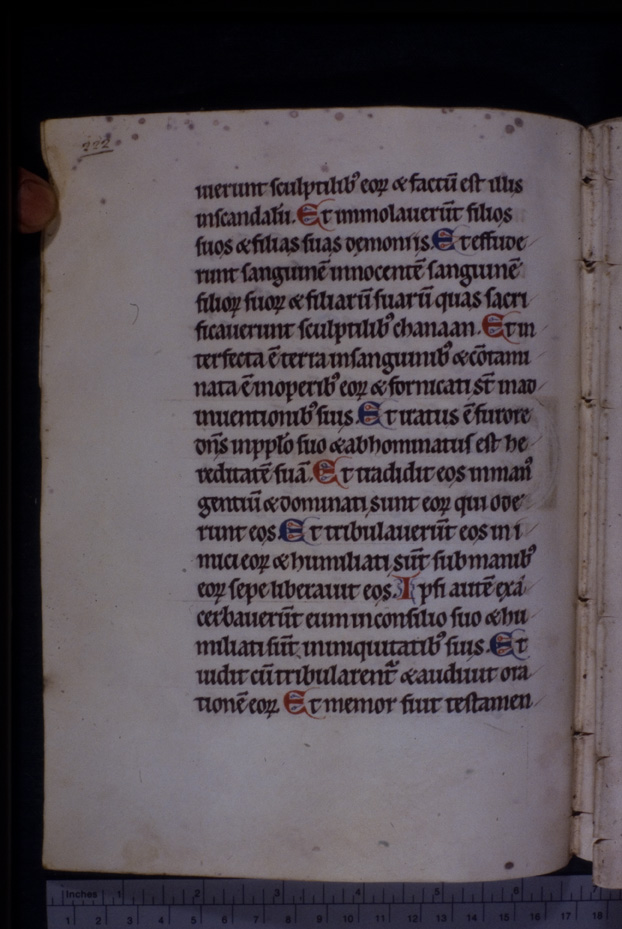 222
uierunt sculptilib' eoꝝ & factū est illis
inscandalū. Et immolauerūt filios
suos & filias suas demoniis. Et effude
runt sanguinē innocentē sanguinē
filioꝝ suoꝝ & filiarū suarū quas sacri
ficauerunt sculptilib' chanaan. Et in
terfecta ē terra insanguinib' & cōtami
nata ē inoperib' eoꝝ & fornicati sт̄ inad
inuentionib' suis. Et iratus ē furore
dn̄s inpplo suo & abhominatus est he
reditatē suā. Et tradidit eos inman'
gentiū & dominati sunt eoꝝ qui ode
runt eos. Et tribulauerūt eos ini
mici eoꝝ & humiliati sūt sub manib'
eoꝝ sepe liberauit eos. Ipsi autē exa
cerbauerūt eum inconsilio suo & hu
miliati sūt ininiquitatib' suis. Et
uidit cū tribularent᷑ & audiuit ora
tionē eoꝝ Et memor fuit testamen
Inches 1 2 3 4 5 6 7
1 2 3 4 5 6 7 8 9 10 11 12 13 14 15 16 17 18